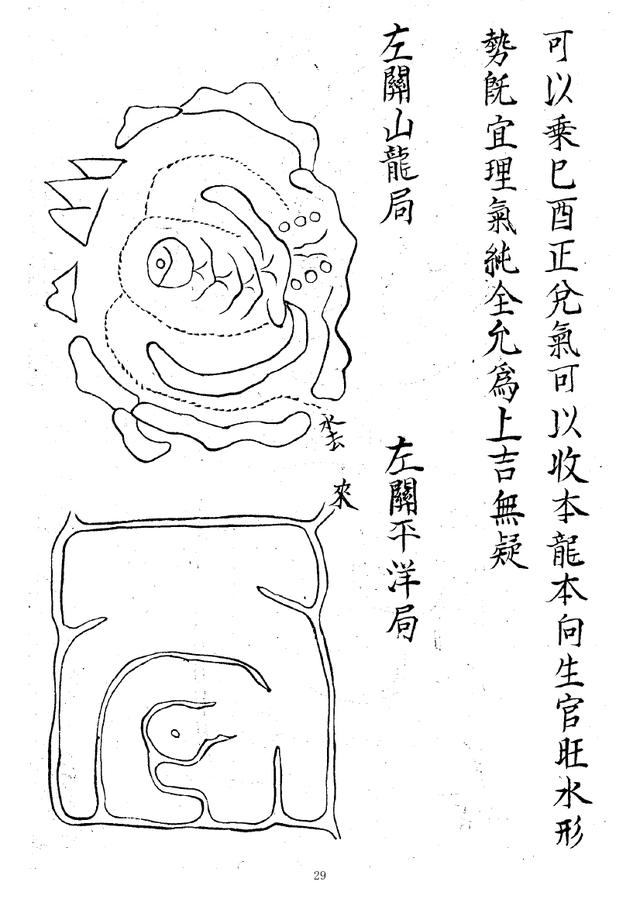 可以乘巳酉正兌氣可以收本龍本向生官旺水形
勢既宜理氣純全允爲上吉無疑
左關山龍局
水去
左關平洋局
來
29